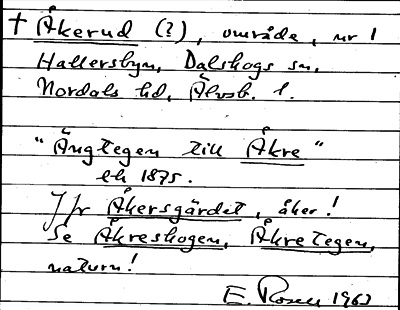 † Åkerud (?), område, nr 1
Hallersbyn, Dalskogs sn,
Nordals hd, Älvsb. l.
"Ängtegen till Åkre"
lh 1875.
Jfr Åkersgärdet, åker!
Se Åkreskogen, Åkretegen,
naturn!
E. Rosell 1963